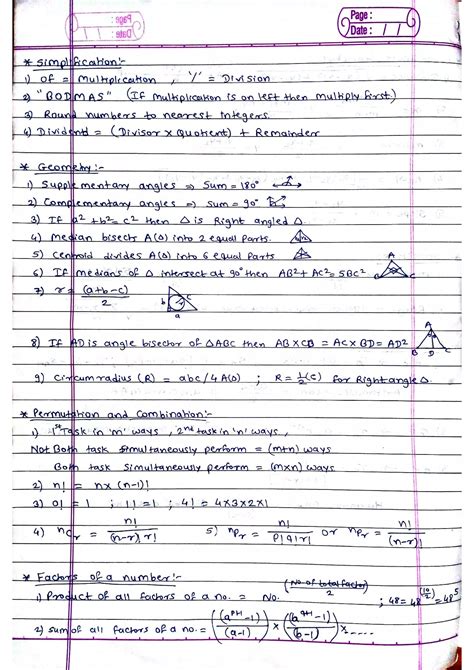 Page :
Date : / /
* Simplification:-
1) Of = Multiplication , '/' = Division
2) "BODMAS" (If Multiplication is on left then multiply first)
3) Round numbers to nearest integers.
4) Dividend = (Divisor x Quotient) + Remainder
* Geometry:-
1) Supplementary angles ⇒ Sum = 180°
2) Complementary angles ⇒ Sum = 90°
3) If a² + b² = c² then Δ is Right angled Δ.
4) Median bisects A(Δ) into 2 equal parts.
5) Centroid divides A(Δ) into 6 equal parts
6) If medians of Δ intersect at 90° then AB² + AC² = 5BC²
A
B
C
7) r = (a+b-c)/2
b
c
r
a
8) If AD is angle bisector of ΔABC then AB x CD = AC x BD = AD²
A
B D C
9) Circumradius (R) = abc/4A(Δ) ; R = ½(c) for Right angle Δ
* Permutation and Combination:-
1) 1st Task in 'm' ways , 2nd task in 'n' ways ,
Not Both task simultaneously perform = (m+n) ways
Both task simultaneously perform = (m×n) ways
2) n! = n x (n-1)!
3) 0! = 1 ; 1! = 1 ; 4! = 4x3x2x1
4) nCr = n!/(n-r)! r! 5) nPr = n!/P! q! r! or nPr = n!/(n-r)!
* Factors of a number:-
1) Product of all factors of a no. = No. (No of total factor)/2 ; 48 = 48^(10/2) = 48⁵
2) sum of all factors of a no. = ((a^(p+1) -1)/(a-1)) x ((a^(q+1) -1)/(b-1)) x .....